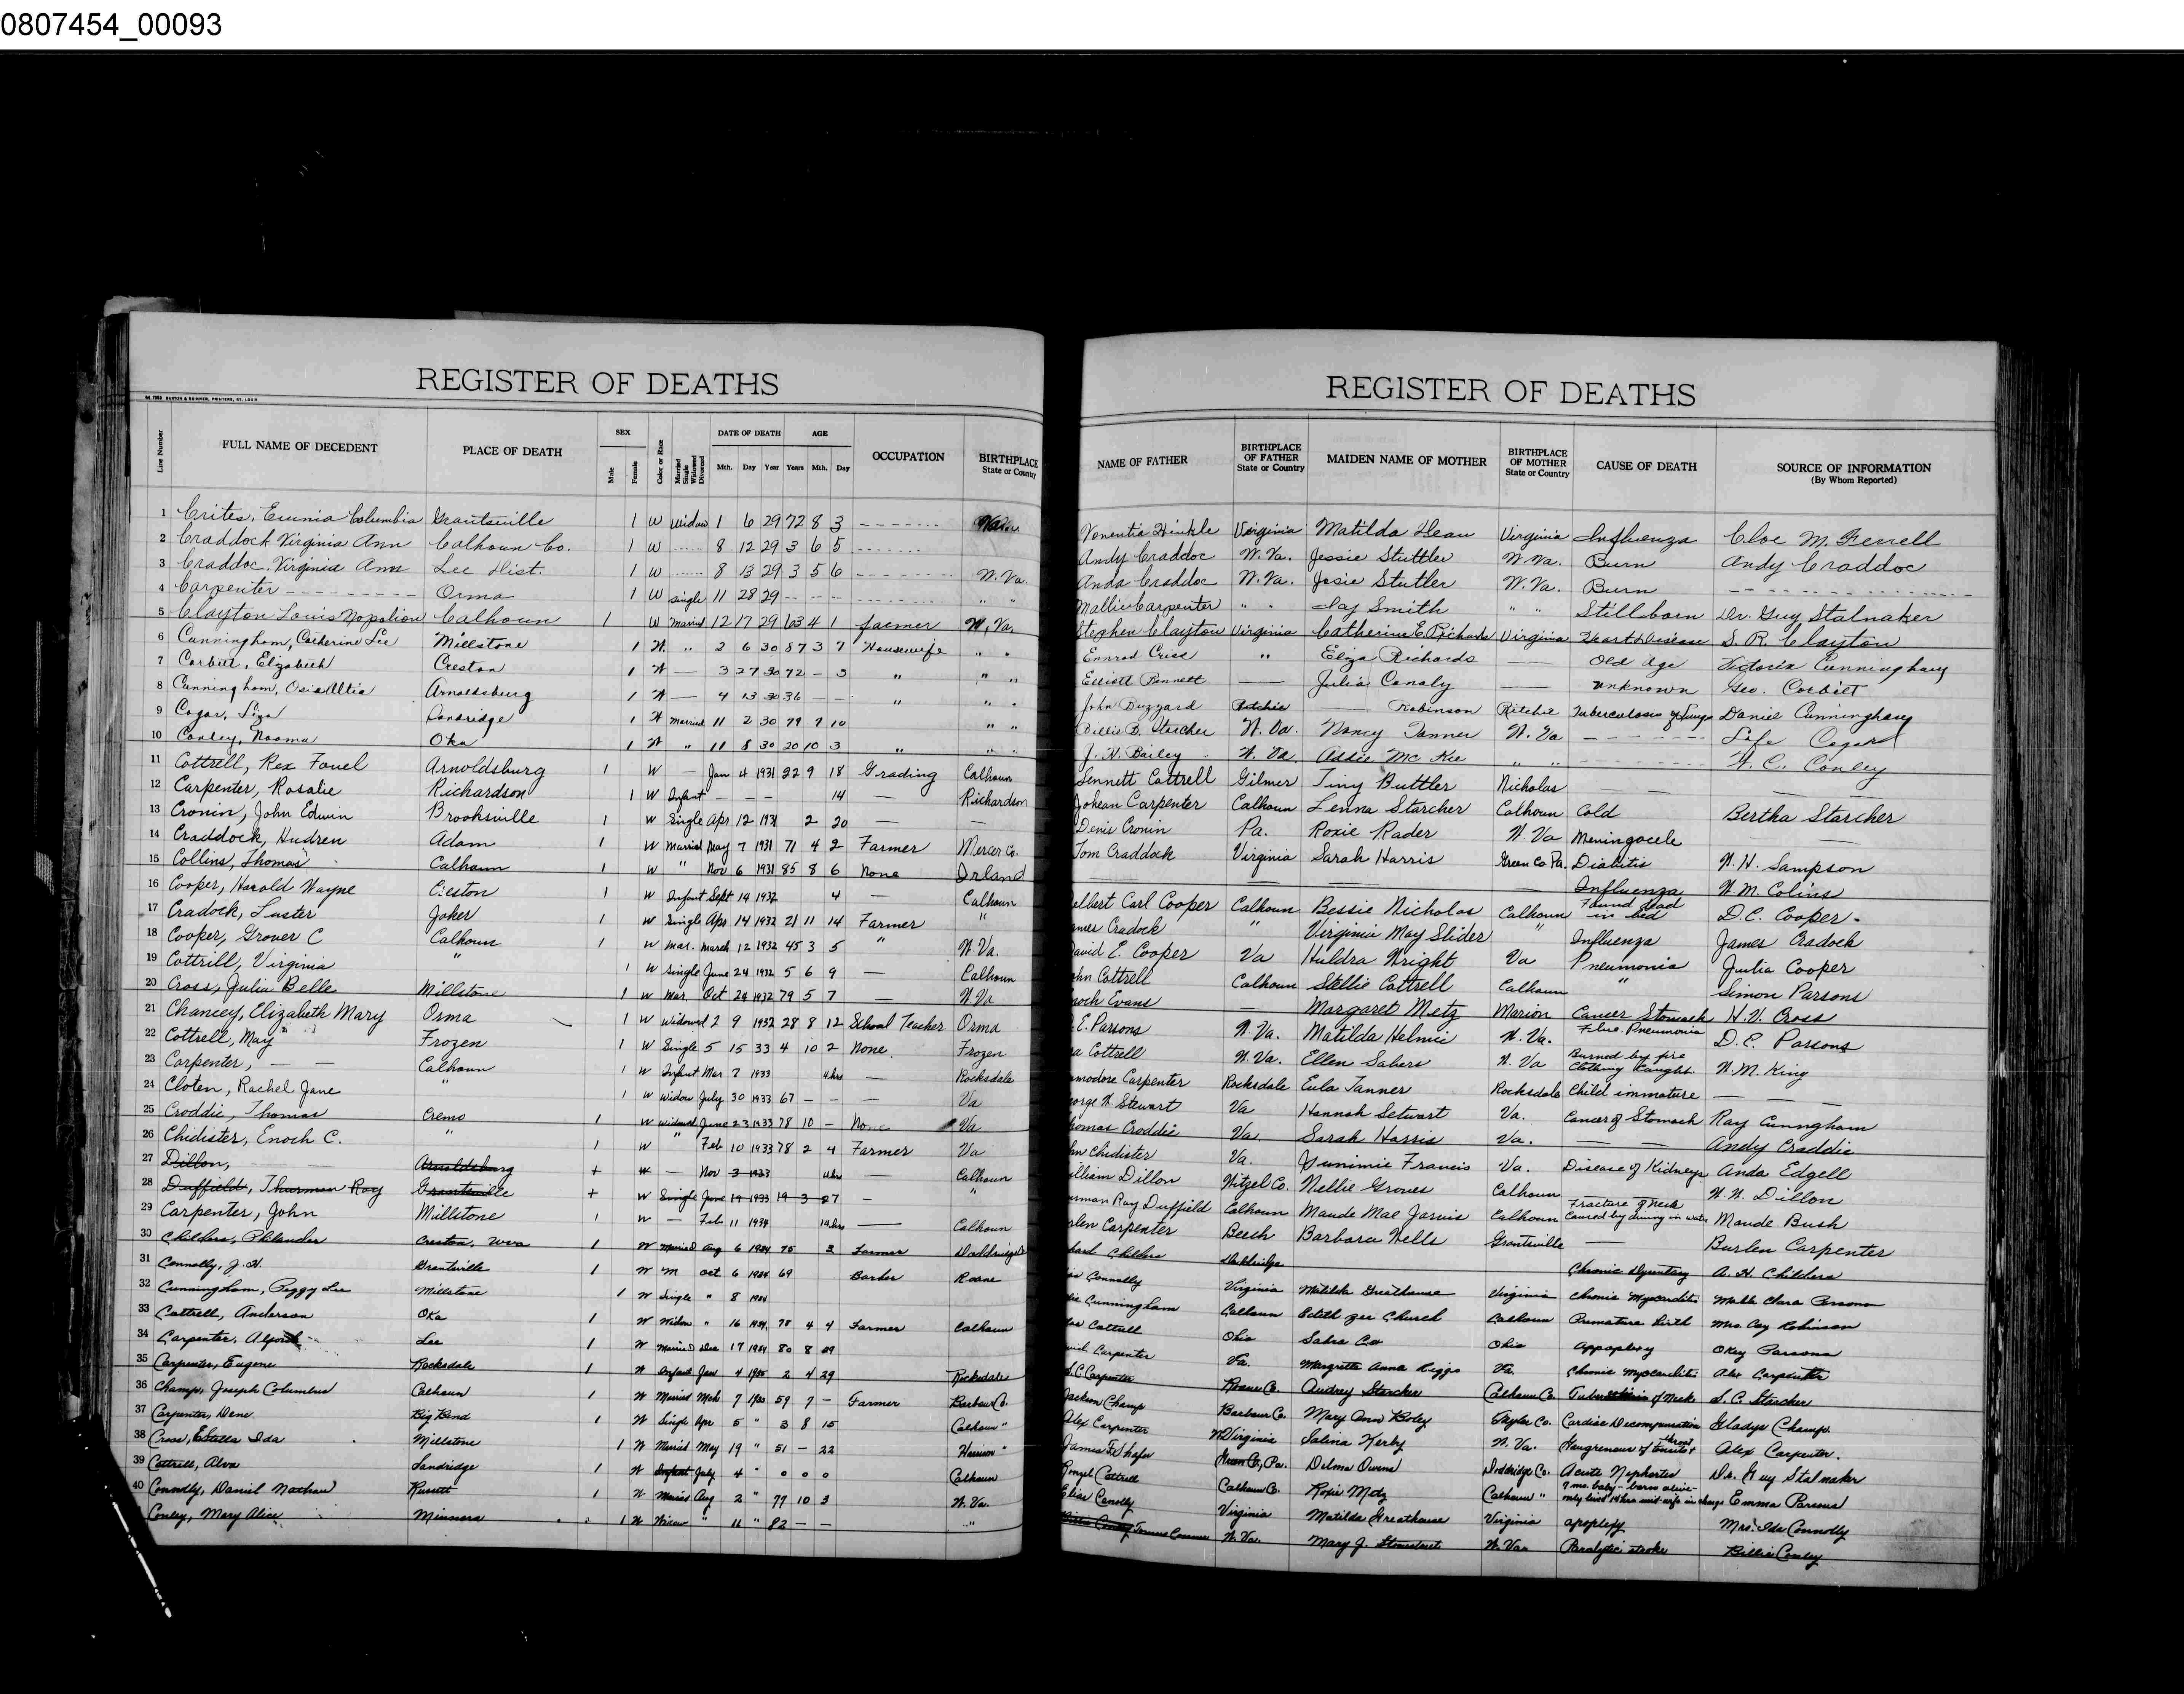 0807454_00093
REGISTER OF DEATHS
Line Number FULL NAME OF DECEDENT PLACE OF DEATH SEX Male Female Color or Race Married Single Widowed Divorced DATE OF DEATH Mth. Day Year AGE Years Mth. Day OCCUPATION BIRTHPLACE State or Country
1 Crites, Columbia Grantsville 1 W Widow 1 6 29 72 8 3
2 Craddock Virginia Ann Calhoun Co. 1 W 8 12 29 3 6 5
3 Craddoc, Virginia Ann Lee Dist. 1 W 8 13 29 3 5 6 W. Va.
4 Carpenter Orma 1 W single 11 28 29 " "
5 Clayton Louis Napolion Calhoun 1 W Married 12 17 29 4 1 farmer W. Va.
6 Cunningham, Catherine Lee Millstone 1 W " 2 6 30 87 3 7 Housewife " "
7 Corbitt, Elizabeth Creston 1 W — 3 27 30 72 – 3 " " "
8 Cunningham, Arnoldsburg 1 W — 4 13 30 36 – " " "
9 Cogar, Liza 1 W Married 11 2 30 79 7 10 " "
10 Conley, Naoma Oka 1 W " 11 8 30 20 10 3 " " "
11 Cottrell, Rex Arnoldsburg 1 W — Jan 4 1931 22 9 18 Grading Calhoun
12 Carpenter, Rosalie Richardson 1 W Infant – – – 14 — Richardson
13 Cronin, John Edwin Brooksville 1 W Single Apr 12 1931 2 20 — —
14 Craddock, Hudren Adam 1 W Married May 7 1931 71 4 2 Farmer Mercer Co.
15 Collins, Thomas Calhoun 1 W " Nov 6 1931 85 8 6 None Irland
16 Cooper, Harold Wayne Creston 1 W Infant Sept 14 1932 4 — Calhoun
17 Cradock, Luster Joker 1 W Single Apr 14 1932 21 11 14 Farmer "
18 Cooper, Grover C Calhoun 1 W Mar. March 12 1932 45 3 5 " W. Va.
19 Cottrill, Virginia " 1 W Single June 24 1932 5 6 9 — Calhoun
20 Cross, Julia Belle Millstone 1 W Mar. Oct 24 1932 79 5 7 — W. Va
21 Chancey, Elizabeth Mary Orma 1 W Widowed 2 9 1932 28 8 12 School Teacher Orma
22 Cottrell, May Frozen 1 W Single 5 15 33 4 10 2 None Frozen
23 Carpenter, — Calhoun 1 W Infant Mar 7 1933 — Rocksdale
24 Cloten, Rachel Jane " 1 W Widow July 30 1933 67 – – — Va
25 Croddie, Thomas Cremo 1 W Widowed June 23 1933 78 10 – None Va
26 Chidister, Enoch C. " 1 W " Feb 10 1933 78 2 4 Farmer Va
27 Dillon, Arnoldsburg W — Nov 3 1933 Calhoun
28 Duffield, Thurman Roy Grantsville W Single June 19 1933 19 3 27 – "
29 Carpenter, John Millstone 1 W — Feb 11 1934 — Calhoun
30 Childers, Philander Creston, Wva 1 W Married Aug 6 1934 75 Farmer Doddridge
31 Connolly, J. H. Grantsville 1 W M Oct. 6 1934 69 Roane
32 Cunningham, Peggy Lee Millstone 1 W Single " 8 1934
33 Cottrell, Anderson Oka 1 W Widow " 16 1934 78 4 4 Farmer Calhoun
34 Carpenter, Lee 1 W Married Dec 17 1934 80 8 29
35 Carpenter, Eugene Rocksdale 1 W Infant Jan 4 1935 2 4 29 Rocksdale
36 Champ, Joseph Columbus Calhoun 1 W Married Mch 7 59 7 – Farmer Barbour Co.
37 Carpenter, Dene Big Bend 1 W Single Apr 5 " 3 8 15 Calhoun "
38 Cross, Estella Ida Millstone 1 W Married May 19 " 51 – 22 Harrison "
39 Cottrell, Alva Sandridge 1 W Infant July 4 " 0 0 0 Calhoun
40 Connolly, Daniel Nathan Russett 1 W Married Aug 2 " 79 10 3 W. Va.
Conley, Mary Alice Minnora 1 W Widow " 11 " 82 – – "
REGISTER OF DEATHS
NAME OF FATHER BIRTHPLACE OF FATHER State or Country MAIDEN NAME OF MOTHER BIRTHPLACE OF MOTHER State or Country CAUSE OF DEATH SOURCE OF INFORMATION (By Whom Reported)
Hinkle Virginia Matilda Virginia Influenza Cloe M. Ferrell
Andy Craddoc W. Va. Jessie Stuttler W. Va. Burn Andy Craddoc
Anda Craddoc W. Va. Josie Stutler W. Va. Burn
Carpenter " " Smith " " Stillborn Dr. Guy Stalnaker
Stephen Clayton Virginia Catherine E. Richards Virginia Heart Disease S. R. Clayton
Criss " Eliza Richards — Old Age Victoria Cunningham
Elliott Bennett — Julia Conaly — Unknown Geo. Corbitt
John Buzzard Ritchie Robinson Ritchie Tuberculosis of Lungs Daniel Cunningham
Billie B. Starcher W. Va. Nancy Tanner W. Va Cogar
J. H. Bailey W. Va. Addie Mc Kee " " W. C. Conley
Sennett Cottrell Gilmer Tiny Buttler Nicholas — —
Johean Carpenter Calhoun Lenna Starcher Calhoun Cold Bertha Starcher
Denis Cronin Pa. Roxie Rader W. Va Meningocele —
Tom Craddock Virginia Sarah Harris Green Co Pa. Diabitis W. H. Sampson
— — — — Influenza W. M. Colins
elbert Carl Cooper Calhoun Bessie Nicholas Calhoun Found dead in bed D. C. Cooper
ames Cradock " Virginia May Slider " Influenza James Cradock
avid E. Cooper Va Huldra Wright Va Pneumonia Julia Cooper
ohn Cottrell Calhoun Stellie Cottrell Calhoun " Simon Parsons
noch Evans — Margaret Metz Marion Cancer Stomach H. V. Cross
E. Parsons W. Va. Matilda Helmic W. Va. Flue. Pneumonia D. E. Parsons
a Cottrell W. Va. Ellen W. Va Burned by fire Clothing Caught. W. M. King
modore Carpenter Rocksdale Eula Tanner Rocksdale Child immature — — —
orge W. Stewart Va Hannah Setwart Va. Cancer of Stomach Ray Cunngham
homas Croddie Va. Sarah Harris Va. — — Andy Craddie
hn Chidister Va. Francis Va. Disease of Kidneys Anda Edgell
illiam Dillon Witzel Co. Nellie Groves Calhoun W. W. Dillon
urman Ray Duffield Calhoun Maude Mae Jarvis Calhoun Fracture of neck Caused by diving in water Maude Bush
rlen Carpenter Beech Barbara Wells Grantsville — Burlen Carpenter
Childers Doddridge Chronic Dysentary A. H. Childers
Connolly Virginia Matilda Greathouse Virginia Chronic Myocarditis Clara Parsons
Cunningham Calhoun Church Calhoun Premature birth Mrs. Robinson
Cottrell Ohio Ohio Appoplexy Okey Parsons
Carpenter Va. Anna Riggs Va. Chronic Myocarditis Alex Carpenter
S. C. Carpenter Roane Co. Audrey Starcher Calhoun Co. of Neck S. C. Starcher
Jackson Champ Barbour Co. Mary Ann Taylor Co. Cardiac Decompensation Gladys Champ
Alex Carpenter W Virginia Salina Kerby W. Va. Alex Carpenter.
James Green Co., Pa. Delma Owens Doddridge Co. Acute Nephritis Dr. Guy Stalnaker
Cottrell Calhoun Co. Roxie Metz Calhoun " 7 mo. baby – born alive – only lived Emma Parsons
Elias Conolly Virginia Matilda Greathouse Virginia apoplexy Mrs. Ida Connolly
W. Va. Mary J. W. Va. Paralytic stroke Billie Conley